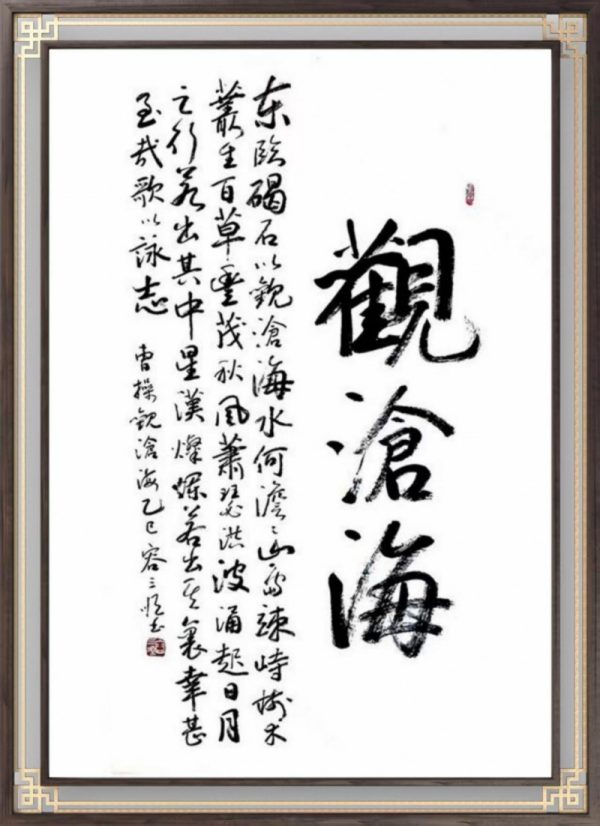 觀滄海
东臨碣石以觀滄海水何澹々山島竦峙樹木
叢生百草豐茂秋風蕭瑟洪波涌起日月
之行若出其中星漢燦爛若出其裏幸甚
至哉歌以詠志
曹操觀滄海乙巳容三书